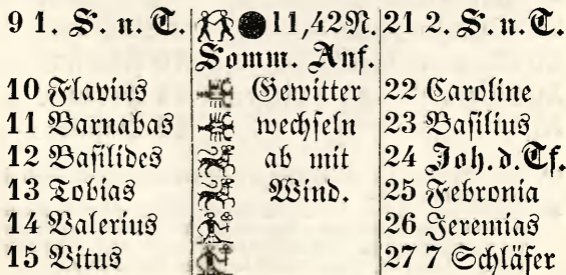 9 1. S. n. T. 11,42N. 21 2. S. n. T.
Somm. Anf.
10 Flavius Gewitter 22 Caroline
11 Barnabas wechseln 23 Basilius
12 Basilides ab mit 24 Joh. d. Tf.
13 Tobias Wind. 25 Febronia
14 Valerius 26 Jeremias
15 Vitus 27 7 Schläfer